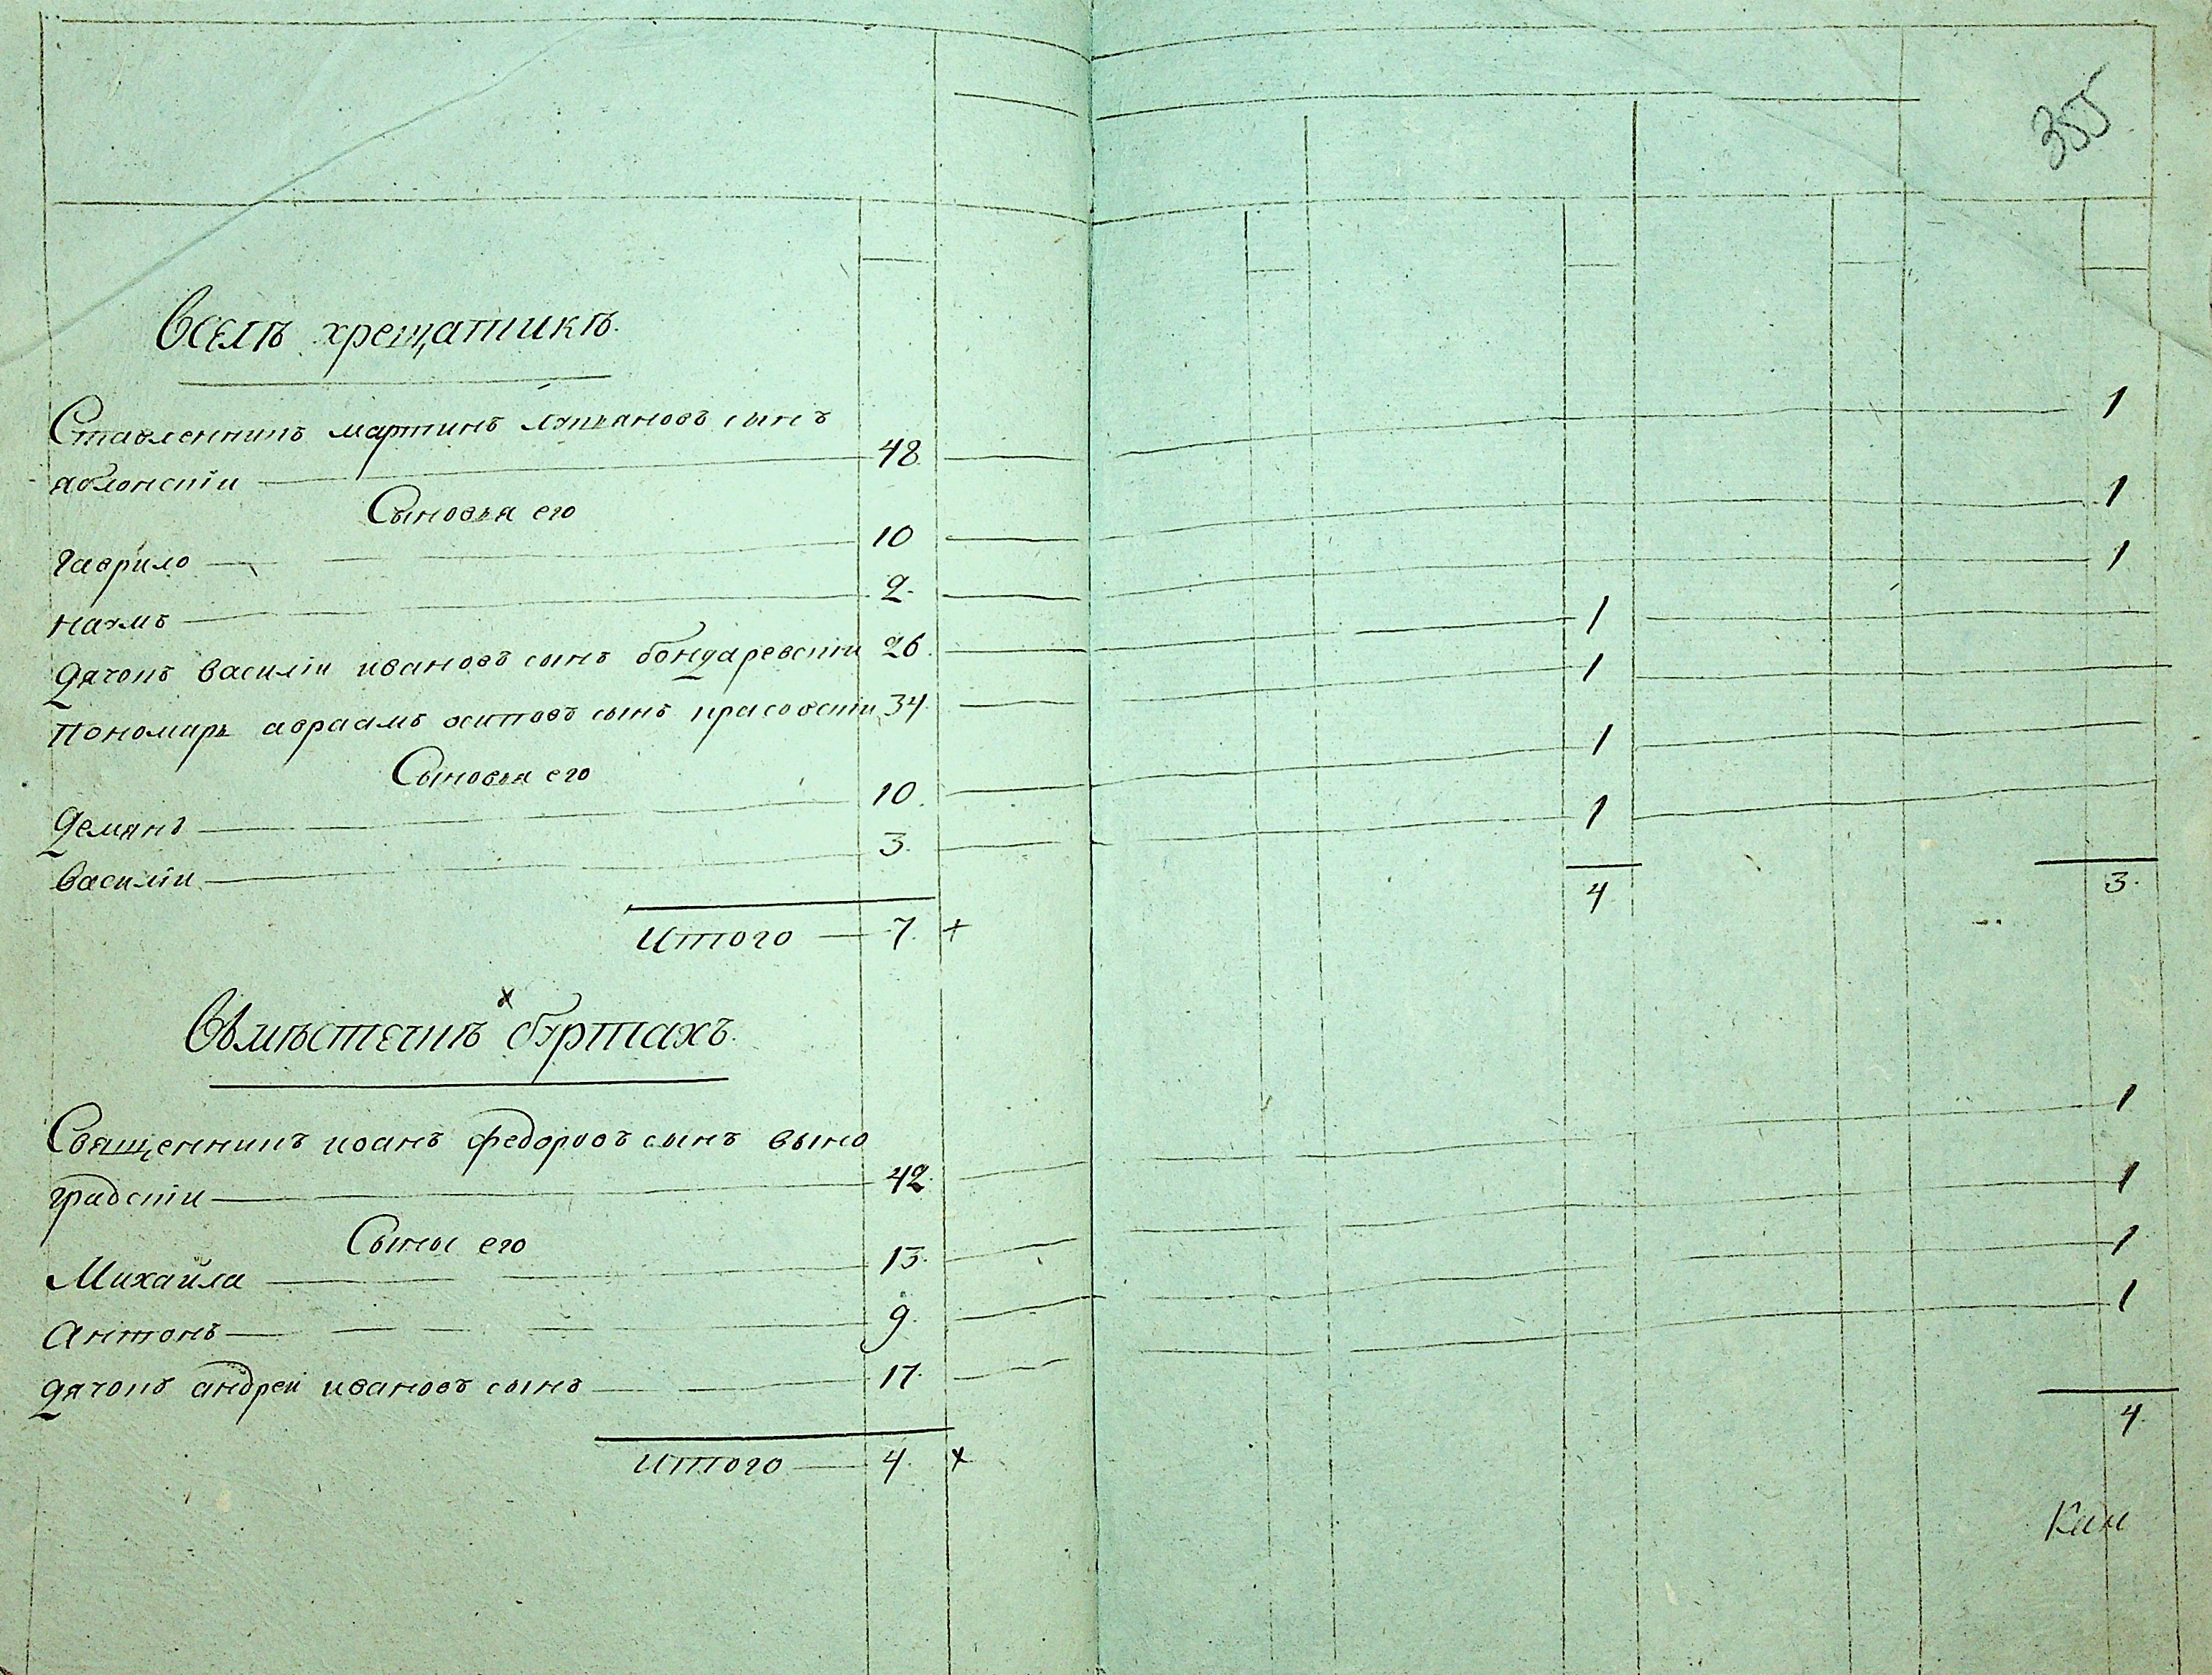 355
Вселѣ хрещатикѣ.
Ставленникъ мартинъ лукьяновъ сынъ
яблонскiи 48 1
Сыновья его
гаврило 10 1
наумъ 2 1
Дячокъ василiи ивановъ сынъ бондаревскiи 26 1
Пономарь авраамъ осиповъ сынъ красовскiи 34 1
Сыновья его
Демянъ 10 1
василiи 3 1
4 3
Итого 7 +
х
Вьмѣстечкѣ буртахъ
Священникъ иоанъ федоровъ сынъ вино
градскiи 42 1
Сыны его
Михайла 13 1
Антонъ 9 1
дячокъ андреи ивановъ сынъ 17 1
4
Итого 4 х